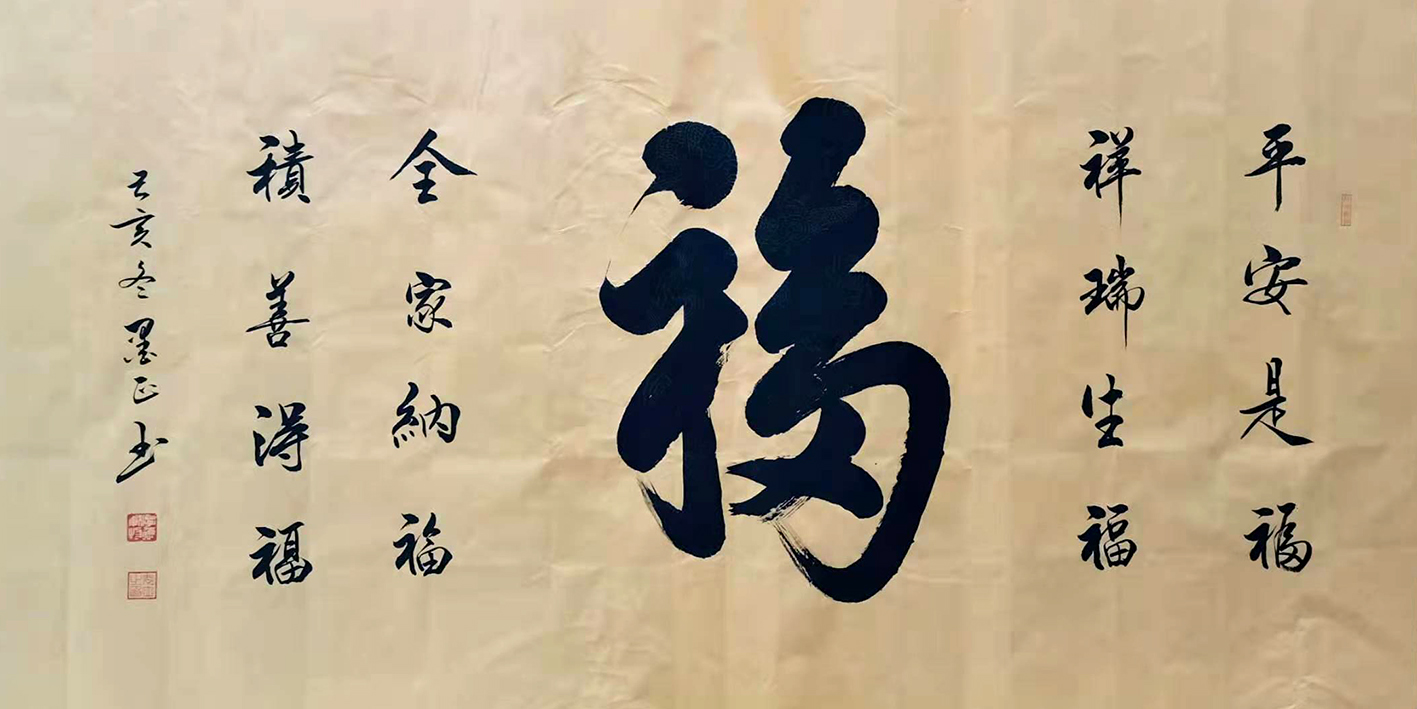 平安是福
祥瑞生福
福
全家納福
積善得福
己亥冬墨正书